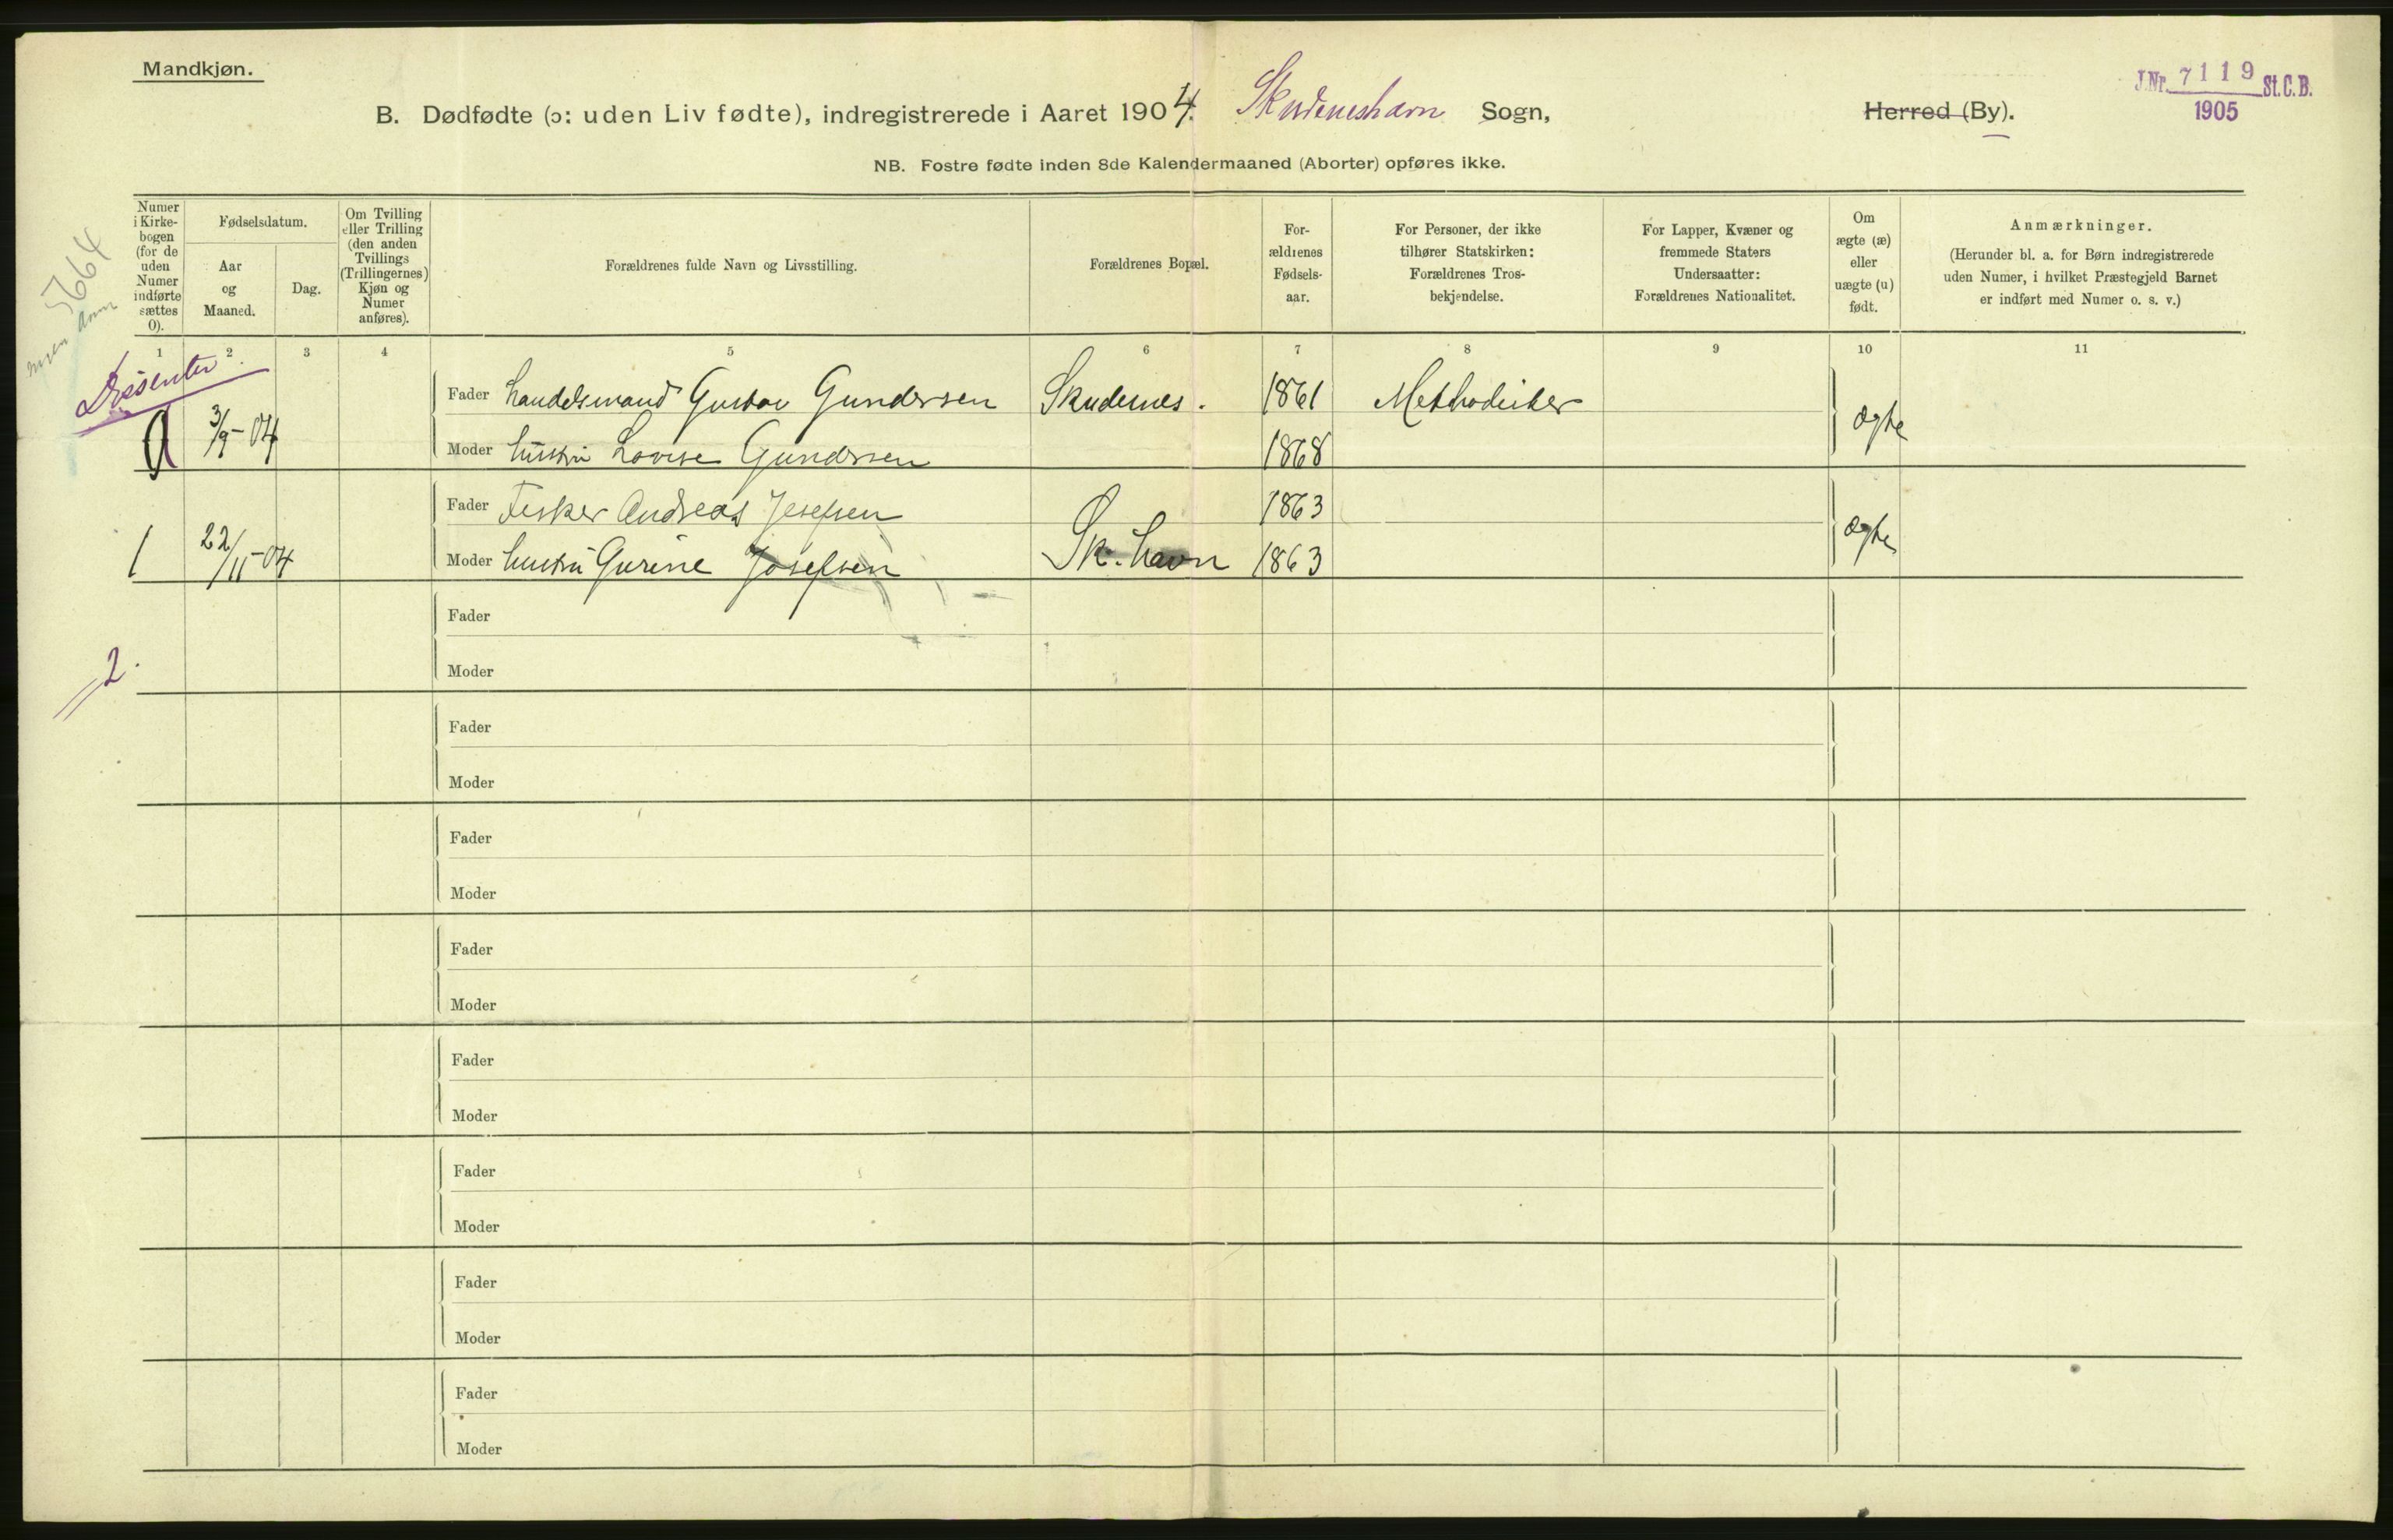 Mandkjøn.
J.Nr. 7119 St.C.B.
1905
B. Dødfødte (ɔ: uden Liv fødte), indregistrerede i Aaret 1904. Skudeneshavn Sogn, Herred (By).
NB. Fostre fødte inden 8de Kalendermaaned (Aborter) opføres ikke.
Numer
i Kirke-
bogen
(for de
uden
Numer
indførte
sættes
0).
Fødselsdatum.
Aar
og
Maaned.
Dag.
Om Tvilling
eller Trilling
(den anden
Tvillings
(Trillingernes)
Kjøn og
Numer
anføres).
Forældrenes fulde Navn og Livsstilling.
Forældrenes Bopæl.
For-
ældrenes
Fødsels-
aar.
For Personer, der ikke
tilhører Statskirken:
Forældrenes Tros-
bekjendelse.
For Lapper, Kvæner og
fremmede Staters
Undersaatter:
Forældrenes Nationalitet.
Om
ægte (æ)
eller
uægte (u)
født.
Anmærkninger.
(Herunder bl. a. for Børn indregistrerede
uden Numer, i hvilket Præstegjeld Barnet
er indført med Numer o. s. v.)
5764
1 2 3 4 5 6 7 8 9 10 11
Dissenter
Fader Handelsmand Gustav Gundersen Skudenes. 1861 Methodister
0 3/9-04 Ægte
Moder Hustru Lovise Gundersen 1868
Fader Fisker Andreas Josefsen 1863
1 22/11-04 Ægte
Moder Hustru Gurine Josefsen Sk. havn 1863
Fader
2.
Moder
Fader
Moder
Fader
Moder
Fader
Moder
Fader
Moder
Fader
Moder
Fader
Moder
Fader
Moder